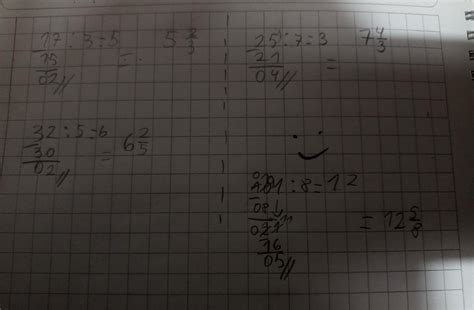 17 : 3 = 5
15
02//
= 5 2/3
25 : 7 = 3
21
04//
= 7 4/3
32 : 5 = 6
30
02//
= 6 2/5
101 : 8 = 12
08↓
021
16
05//
= 12 5/8